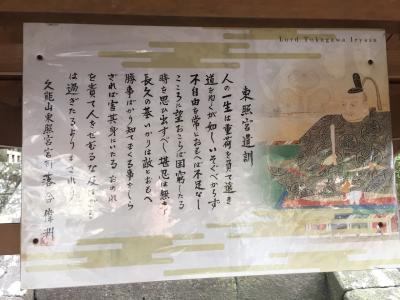 Lord Tokugawa Ieyasu
東照宮遺訓
人の一生は重荷を負て遠き
道をゆくが如しいそぐべからず
不自由を常とおもへば不足なし
こころに望おこらば困窮したる
時を思ひ出すべし堪忍は無事
長久の基いかりは敵とおもへ
勝事ばかり知てまくる事をしら
ざれば害其身にいたるおのれ
を責て人をせむるな及ばざる
は過ぎたるよりまされり
久能山東照宮宮司